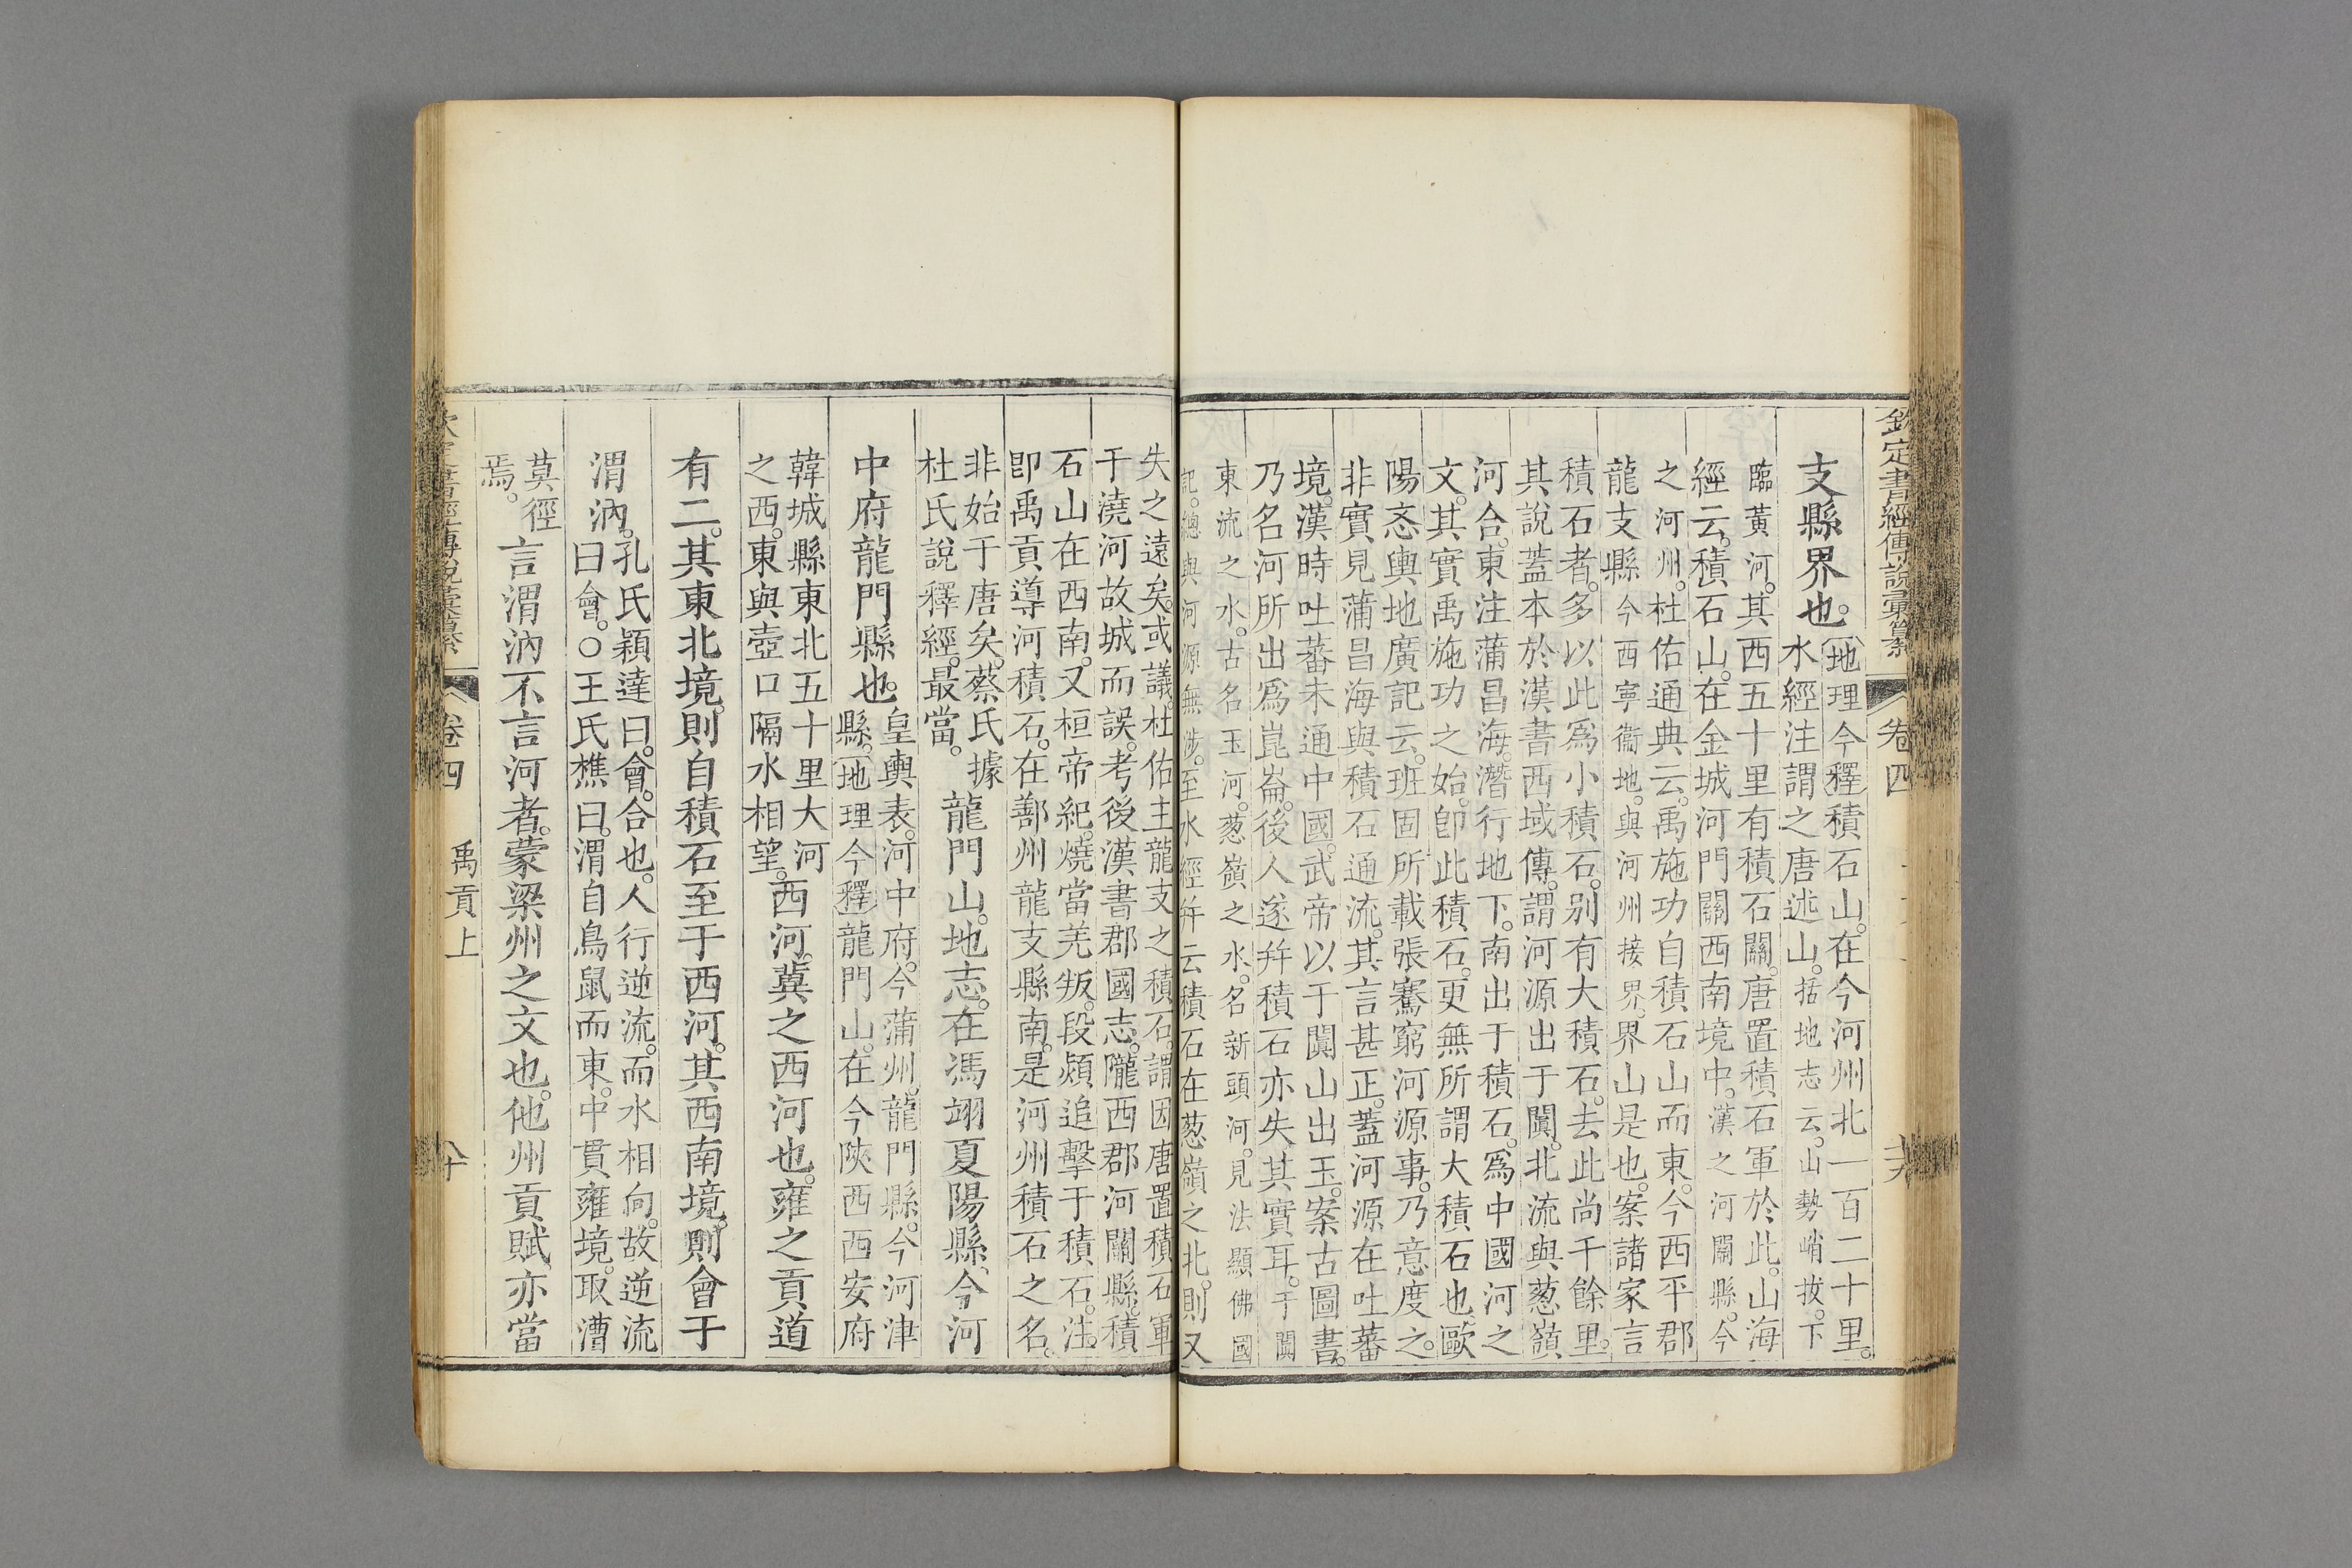 欽定書經傳說彙纂 卷四
支縣界也。
地理今釋積石山。在今河州北一百二十里。
水經注謂之唐述山。括地志云。山勢峭拔。下
臨黃河。其西五十里有積石關。唐置積石軍於此。山海
經云。積石山。在金城河門關西南境中。漢之河關縣。今
之河州。杜佑通典云。禹施功自積石山而東。今西平郡
龍支縣今西寧衞地。與河州接界。界山是也。案諸家言
積石者。多以此為小積石。別有大積石。去此尚千餘里。
其說蓋本於漢書西域傳。謂河源出于闐。北流與葱嶺
河合。東注蒲昌海。潛行地下。南出于積石。為中國河之
文。其實禹施功之始。卽此積石。更無所謂大積石也。歐
陽忞輿地廣記云。班固所載張騫窮河源事。乃意度之。
非實見蒲昌海與積石通流。其言甚正。蓋河源在吐蕃
境。漢時吐蕃未通中國。武帝以于闐山出玉。案古圖書。
乃名河所出為崑崙。後人遂幷積石亦失其實耳。于闐
東流之水。古名玉河。葱嶺之水。名新頭河。見法顯佛國
記。總與河源無涉。至水經幷云積石在葱嶺之北。則又
失之遠矣。或議杜佑主龍支之積石。謂因唐置積石軍
于澆河故城而誤。考後漢書郡國志。隴西郡河關縣。積
石山在西南。又桓帝紀。燒當羌叛。段熲追擊于積石。注
卽禹貢導河積石。在鄯州龍支縣南。是河州積石之名。
非始于唐矣。蔡氏據
杜氏說釋經。最當。
龍門山。地志。在馮翊夏陽縣。今河
中府龍門縣也。
皇輿表。河中府。今蒲州。龍門縣。今河津
縣。地理今釋龍門山。在今陝西西安府
韓城縣東北五十里大河
之西。東與壺口隔水相望。
西河。冀之西河也。雍之貢道
有二。其東北境。則自積石至于西河。其西南境。則會于
渭汭。
孔氏穎達曰。會。合也。人行逆流。而水相向。故逆流
曰會。○王氏樵曰。渭自鳥鼠而東。中貫雍境。取漕
莫徑
焉。
言渭汭不言河者。蒙梁州之文也。他州貢賦亦當
卷四 禹貢上